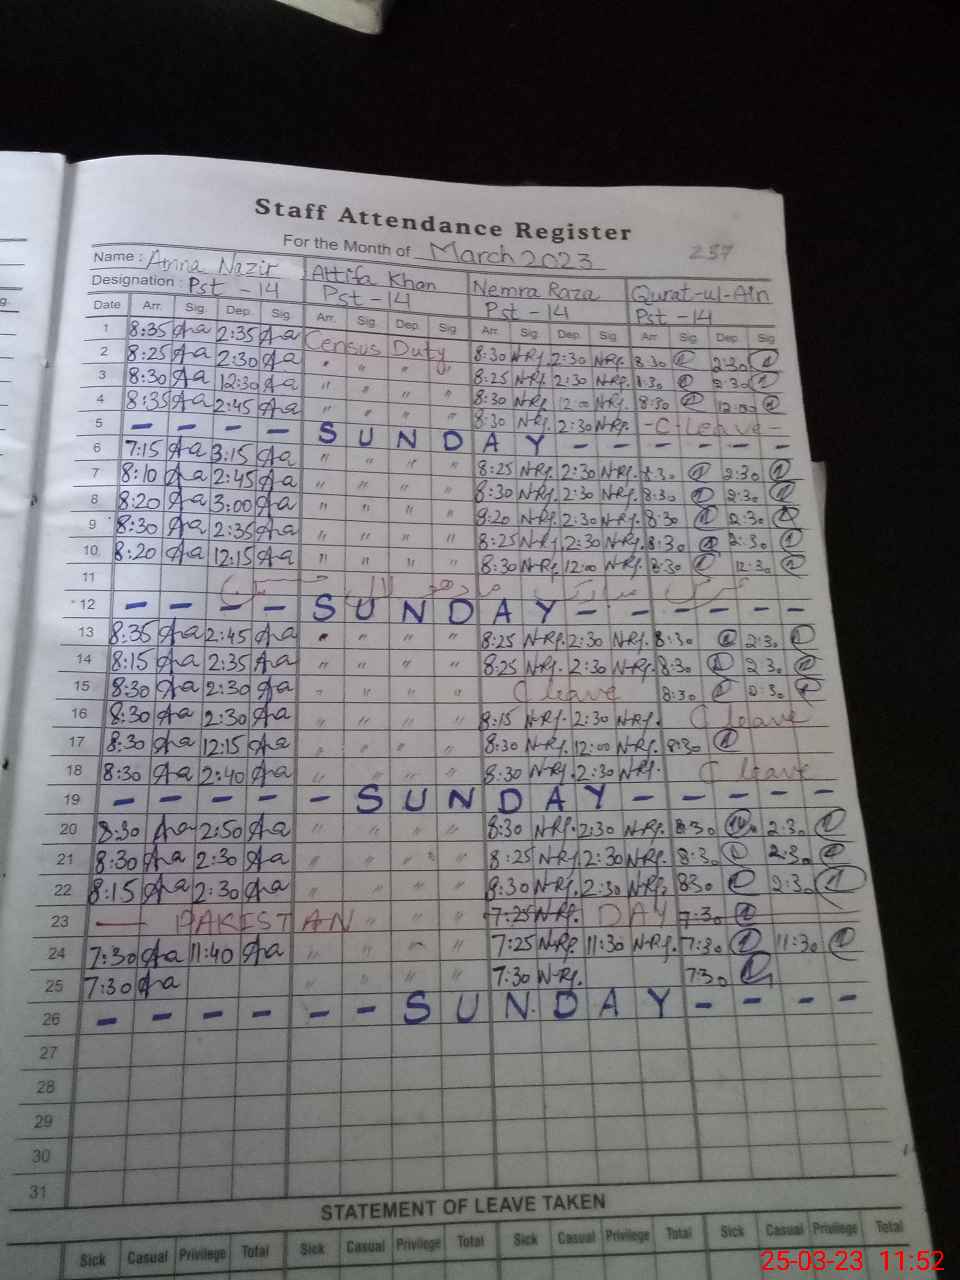 Staff Attendance Register
For the Month of March 2023 237
Name : Amna Nazir Attifa Khan Nemra Raza Qurat-ul-Ain
Designation : Pst - 14 Pst - 14 Pst - 14 Pst - 14
Date Arr. Sig. Dep. Sig. Arr. Sig. Dep. Sig Arr. Sig. Dep. Sig Arr Sig. Dep Sig
1 8:35 Aa 2:35 Aa Census Duty 8:30 N-Rf. 2:30 N-Rf. 8:30 2:30
2 8:25 Aa 2:30 Aa " " " " 8:25 N-Rf. 2:30 N-Rf. 8:30 2:30
3 8:30 Aa 12:30 Aa " " " " 8:30 N-Rf. 12:00 N-Rf. 8:30 12:00
4 8:35 Aa 2:45 Aa " " " " 8:30 N-Rf. 2:30 N-Rf. - C - Leave -
5 - - - - S U N D A Y - - - - - -
6 7:15 Aa 3:15 Aa " " " " 8:25 N-Rf. 2:30 N-Rf. 8:30 2:30
7 8:10 Aa 2:45 Aa " " " " 8:30 N-Rf. 2:30 N-Rf. 8:30 2:30
8 8:20 Aa 3:00 Aa " " " " 8:20 N-Rf. 2:30 N-Rf. 8:30 2:30
9 8:30 Aa 2:35 Aa " " " " 8:25 N-Rf. 2:30 N-Rf. 8:30 2:30
10 8:20 Aa 12:15 Aa " " " " 8:30 N-Rf. 12:00 N-Rf. 8:30 12:30
11
12 - - - - S U N D A Y - - - - - -
13 8:35 Aa 2:45 Aa " " " " 8:25 N-Rf. 2:30 N-Rf. 8:30 2:30
14 8:15 Aa 2:35 Aa " " " " 8:25 N-Rf. 2:30 N-Rf. 8:30 2:30
15 8:30 Aa 2:30 Aa " " " " C leave 8:30 2:30
16 8:30 Aa 2:30 Aa " " " " 8:15 N-Rf. 2:30 N-Rf. C leave
17 8:30 Aa 12:15 Aa " " " " 8:30 N-Rf. 12:00 N-Rf. 8:30
18 8:30 Aa 2:40 Aa " " " " 8:30 N-Rf. 2:30 N-Rf. C leave
19 - - - - - S U N D A Y - - - - -
20 8:30 Aa 2:50 Aa " " " " 8:30 N-Rf. 2:30 N-Rf. 8:30 2:30
21 8:30 Aa 2:30 Aa " " " " 8:25 N-Rf. 2:30 N-Rf. 8:30 2:30
22 8:15 Aa 2:30 Aa " " " " 8:30 N-Rf. 2:30 N-Rf. 830 2:30
23 — PAKISTAN " " " 7:25 N-Rf. DAY 7:30
24 7:30 Aa 11:40 Aa " " " " 7:25 N-Rf. 11:30 N-Rf. 7:30 11:30
25 7:30 Aa " " " " 7:30 N-Rf. 7:30
26 - - - - - - S U N D A Y - - - -
27
28
29
30
31
STATEMENT OF LEAVE TAKEN
Sick Casual Privilege Total Sick Casual Privilege Total Sick Casual Privilege Total Sick Casual Privilege Total
25-03-23 11:52